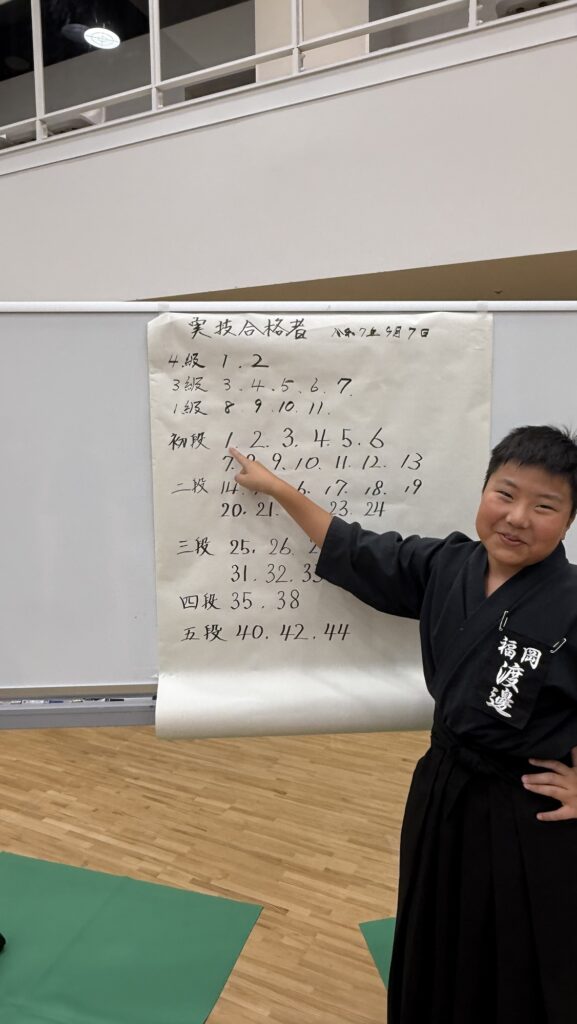 実技合格者 令和7年9月7日
4級 1.2
3級 3.4.5.6.7.
1級 8.9.10.11.
初段 1.2.3.4.5.6
7.8.9.10.11.12.13
二段 14. 6.17.18.19
20.21. 23.24
三段 25.26.
31.32.33
四段 35.38
五段 40.42.44
福岡
渡邊